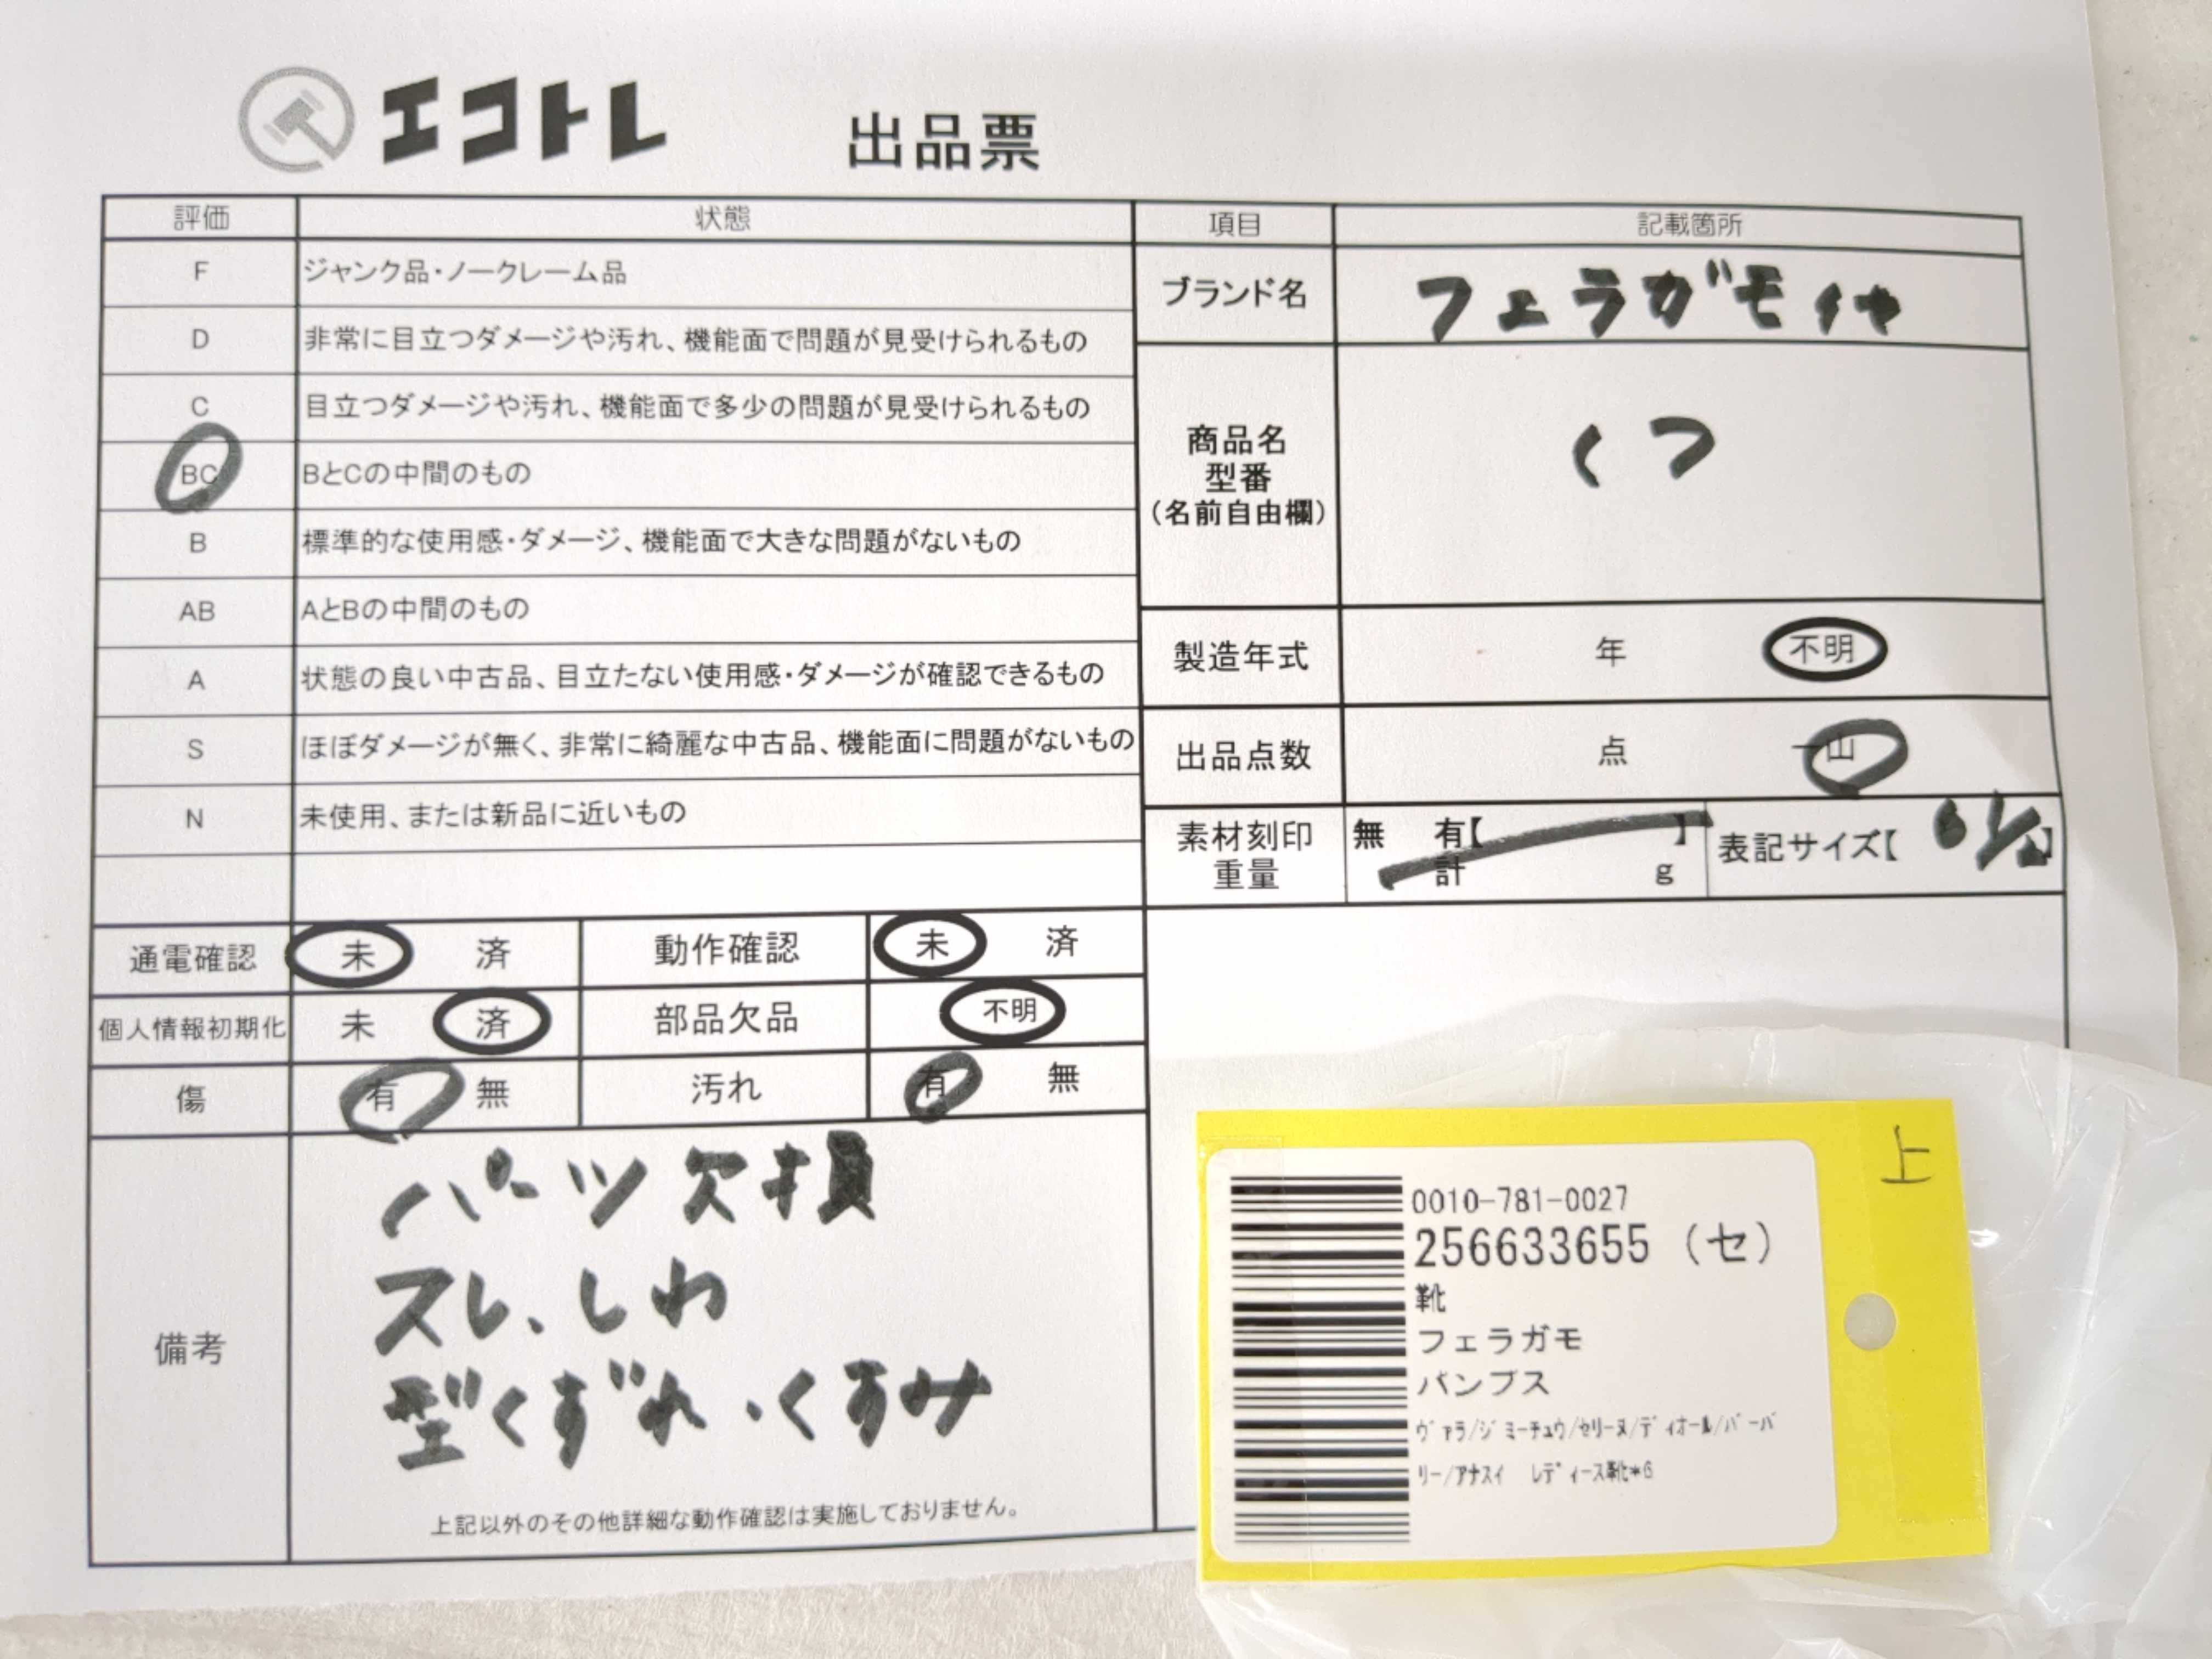 エコトレ 出品票
評価 状態 項目 記載箇所
F ジャンク品・ノークレーム品
D 非常に目立つダメージや汚れ、機能面で問題が見受けられるもの
C 目立つダメージや汚れ、機能面で多少の問題が見受けられるもの
BC BとCの中間のもの
B 標準的な使用感・ダメージ、機能面で大きな問題がないもの
AB AとBの中間のもの
A 状態の良い中古品、目立たない使用感・ダメージが確認できるもの
S ほぼダメージが無く、非常に綺麗な中古品、機能面に問題がないもの
N 未使用、または新品に近いもの
ブランド名 フェラガモ
商品名 くつ
型番
(名前自由欄)
製造年式 年 不明
出品点数 点 一山
素材刻印 無 有【 】 表記サイズ【 】
重量 計 g
通電確認 未 済 動作確認 未 済
個人情報初期化 未 済 部品欠品 不明
傷 有 無 汚れ 有 無
備考
パーツ欠損
スレ、しわ
型くずれ・くすみ
上記以外のその他詳細な動作確認は実施しておりません。
上
0010-781-0027
256633655 (セ)
靴
フェラガモ
パンプス
ヴァラ/ジミーチュウ/セリーヌ/ディオール/バーバ
リー/アナスイ レディース靴*6